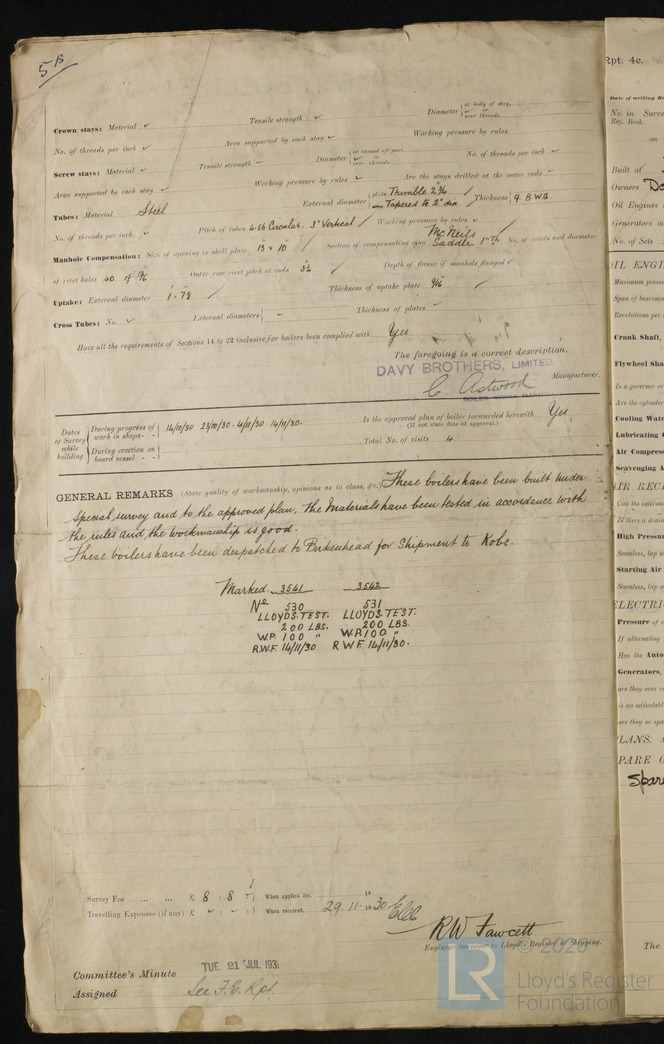 5B
Tensile strength ✓ Diameter at body of stay, or over threads
Crown stays: Material ✓
No. of threads per inch ✓ Area supported by each stay ✓ Working pressure by rules
Screw stays: Material ✓ Tensile strength ✓ Diameter at turned off part, or over threads No. of threads per inch ✓
Area supported by each stay ✓ Working pressure by rules ✓ Are the stays drilled at the outer ends ✓
Tubes: Material Steel External diameter plain Thimble 2¾ Tapered to 2" dia Thickness 9 B.W.G.
No. of threads per inch ✓ Pitch of tubes 4·56 Circular. 3" Vertical Working pressure by rules ✓
Manhole Compensation: Size of opening in shell plate 13" × 10" Section of compensating ring McNeils Saddle No. of rivets and diameter
of rivet holes 40 of Outer row rivet pitch at ends Depth of flange if manhole flanged ✓
Uptake: External diameter Thickness of uptake plate 9/16
Cross Tubes: No. ✓ External diameters ✓ Thickness of plates ✓
Have all the requirements of Sections 14 to 22 inclusive for boilers been complied with Yes
The foregoing is a correct description,
DAVY BROTHERS, LIMITED.
C. Astwood Manufacturer.
Dates of Survey while building
During progress of work in shops - - 14/10/30 23/10/30 · 4/11/30 · 14/11/30.
Is the approved plan of boiler forwarded herewith Yes.
(If not state date of approval.)
During erection on board vessel - - -
Total No. of visits 4
GENERAL REMARKS (State quality of workmanship, opinions as to class, &c. These boilers have been built under
special survey and to the approved plan, the materials have been tested in accordance with
the rules and the workmanship is good.
These boilers have been despatched to Birkenhead for Shipment to Kobe.
Marked. 3541 3542
No 530 531
LLOYDS TEST. LLOYDS TEST.
200 LBS. 200 LBS.
W.P. 100 " W.P. 100 "
R.W.F. 14/11/30 R W F. 14/11/30.
Survey Fee ... ... £ 8 : 8 : - When applied for. 19
Travelling Expenses (if any) £ When received, 29.11. 1930
RW Fawcett
Engineer Surveyor to Lloyd's Register of Shipping.
Committee's Minute TUE. 21 JUL 193
Assigned See F.E. Rpt
© 2020
LR
Lloyd's Register
Foundation
Rpt. 4c.
Date of writing Re
No. in Surve
Reg. Book.
on
Built at
Owners Do
Oil Engines
Generators
No. of Sets
OIL ENGI
Maximum press
Span of bearings
Revolutions per
Crank Shaft,
Flywheel Sha
Is a governor
Are the cylinder
Cooling Wate
Lubricating
Air Compress
Scavenging A
AIR RECE
Can the intern
If there a drain
High Pressur
Seamless, lap w
Starting Air
Seamless, lap w
ELECTRI
Pressure of
If alternating
Has the Auto
Generators,
are they over
is an adjustabl
are they so spa
PLANS. A
SPARE G
Spare
The